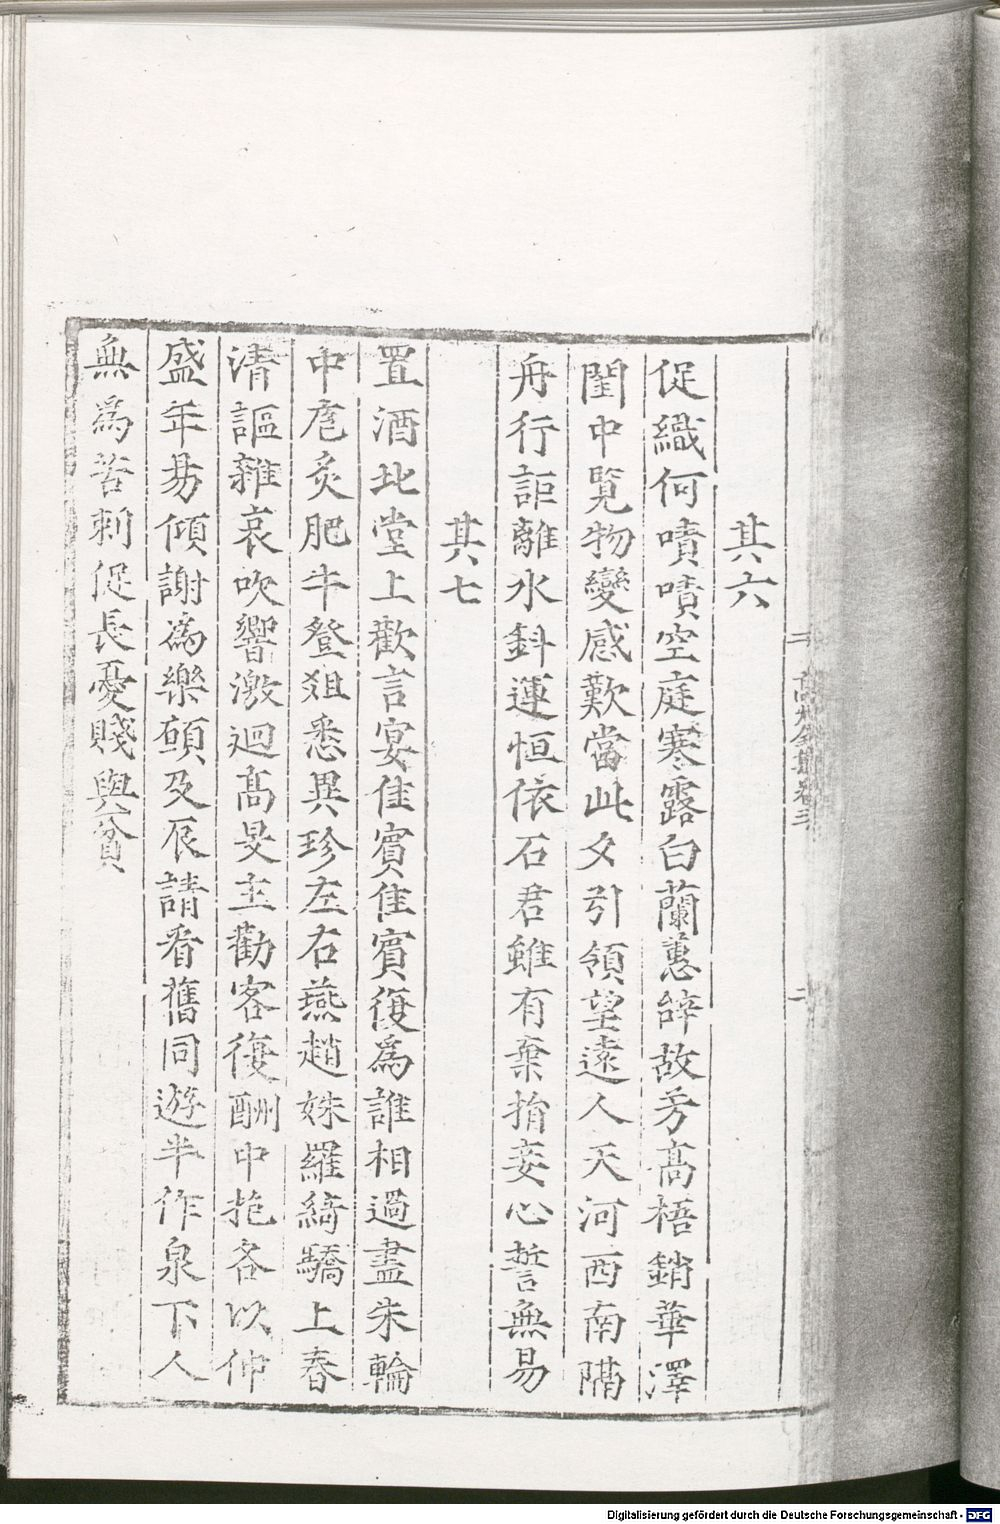 其六
促織何嘖嘖空庭寒露白蘭蕙辭故芳高梧銷華澤
閨中覽物變感歎當此夕引領望遠人天河西南隔
舟行詎離水斜蓮恒依石君雖有棄捐妾心誓無易
其七
置酒北堂上歡言宴佳賓佳賓復爲誰相過盡朱輪
中庖炙肥牛登俎悉異珍左右燕趙姝羅綺驕上春
清謳雜哀吹響激迴高旻主勸客復酬中抱各以伸
盛年易傾謝爲樂願及辰請看舊同遊半作泉下人
無爲苦刺促長憂賤與貧
Digitalisierung gefördert durch die Deutsche Forschungsgemeinschaft - DFG